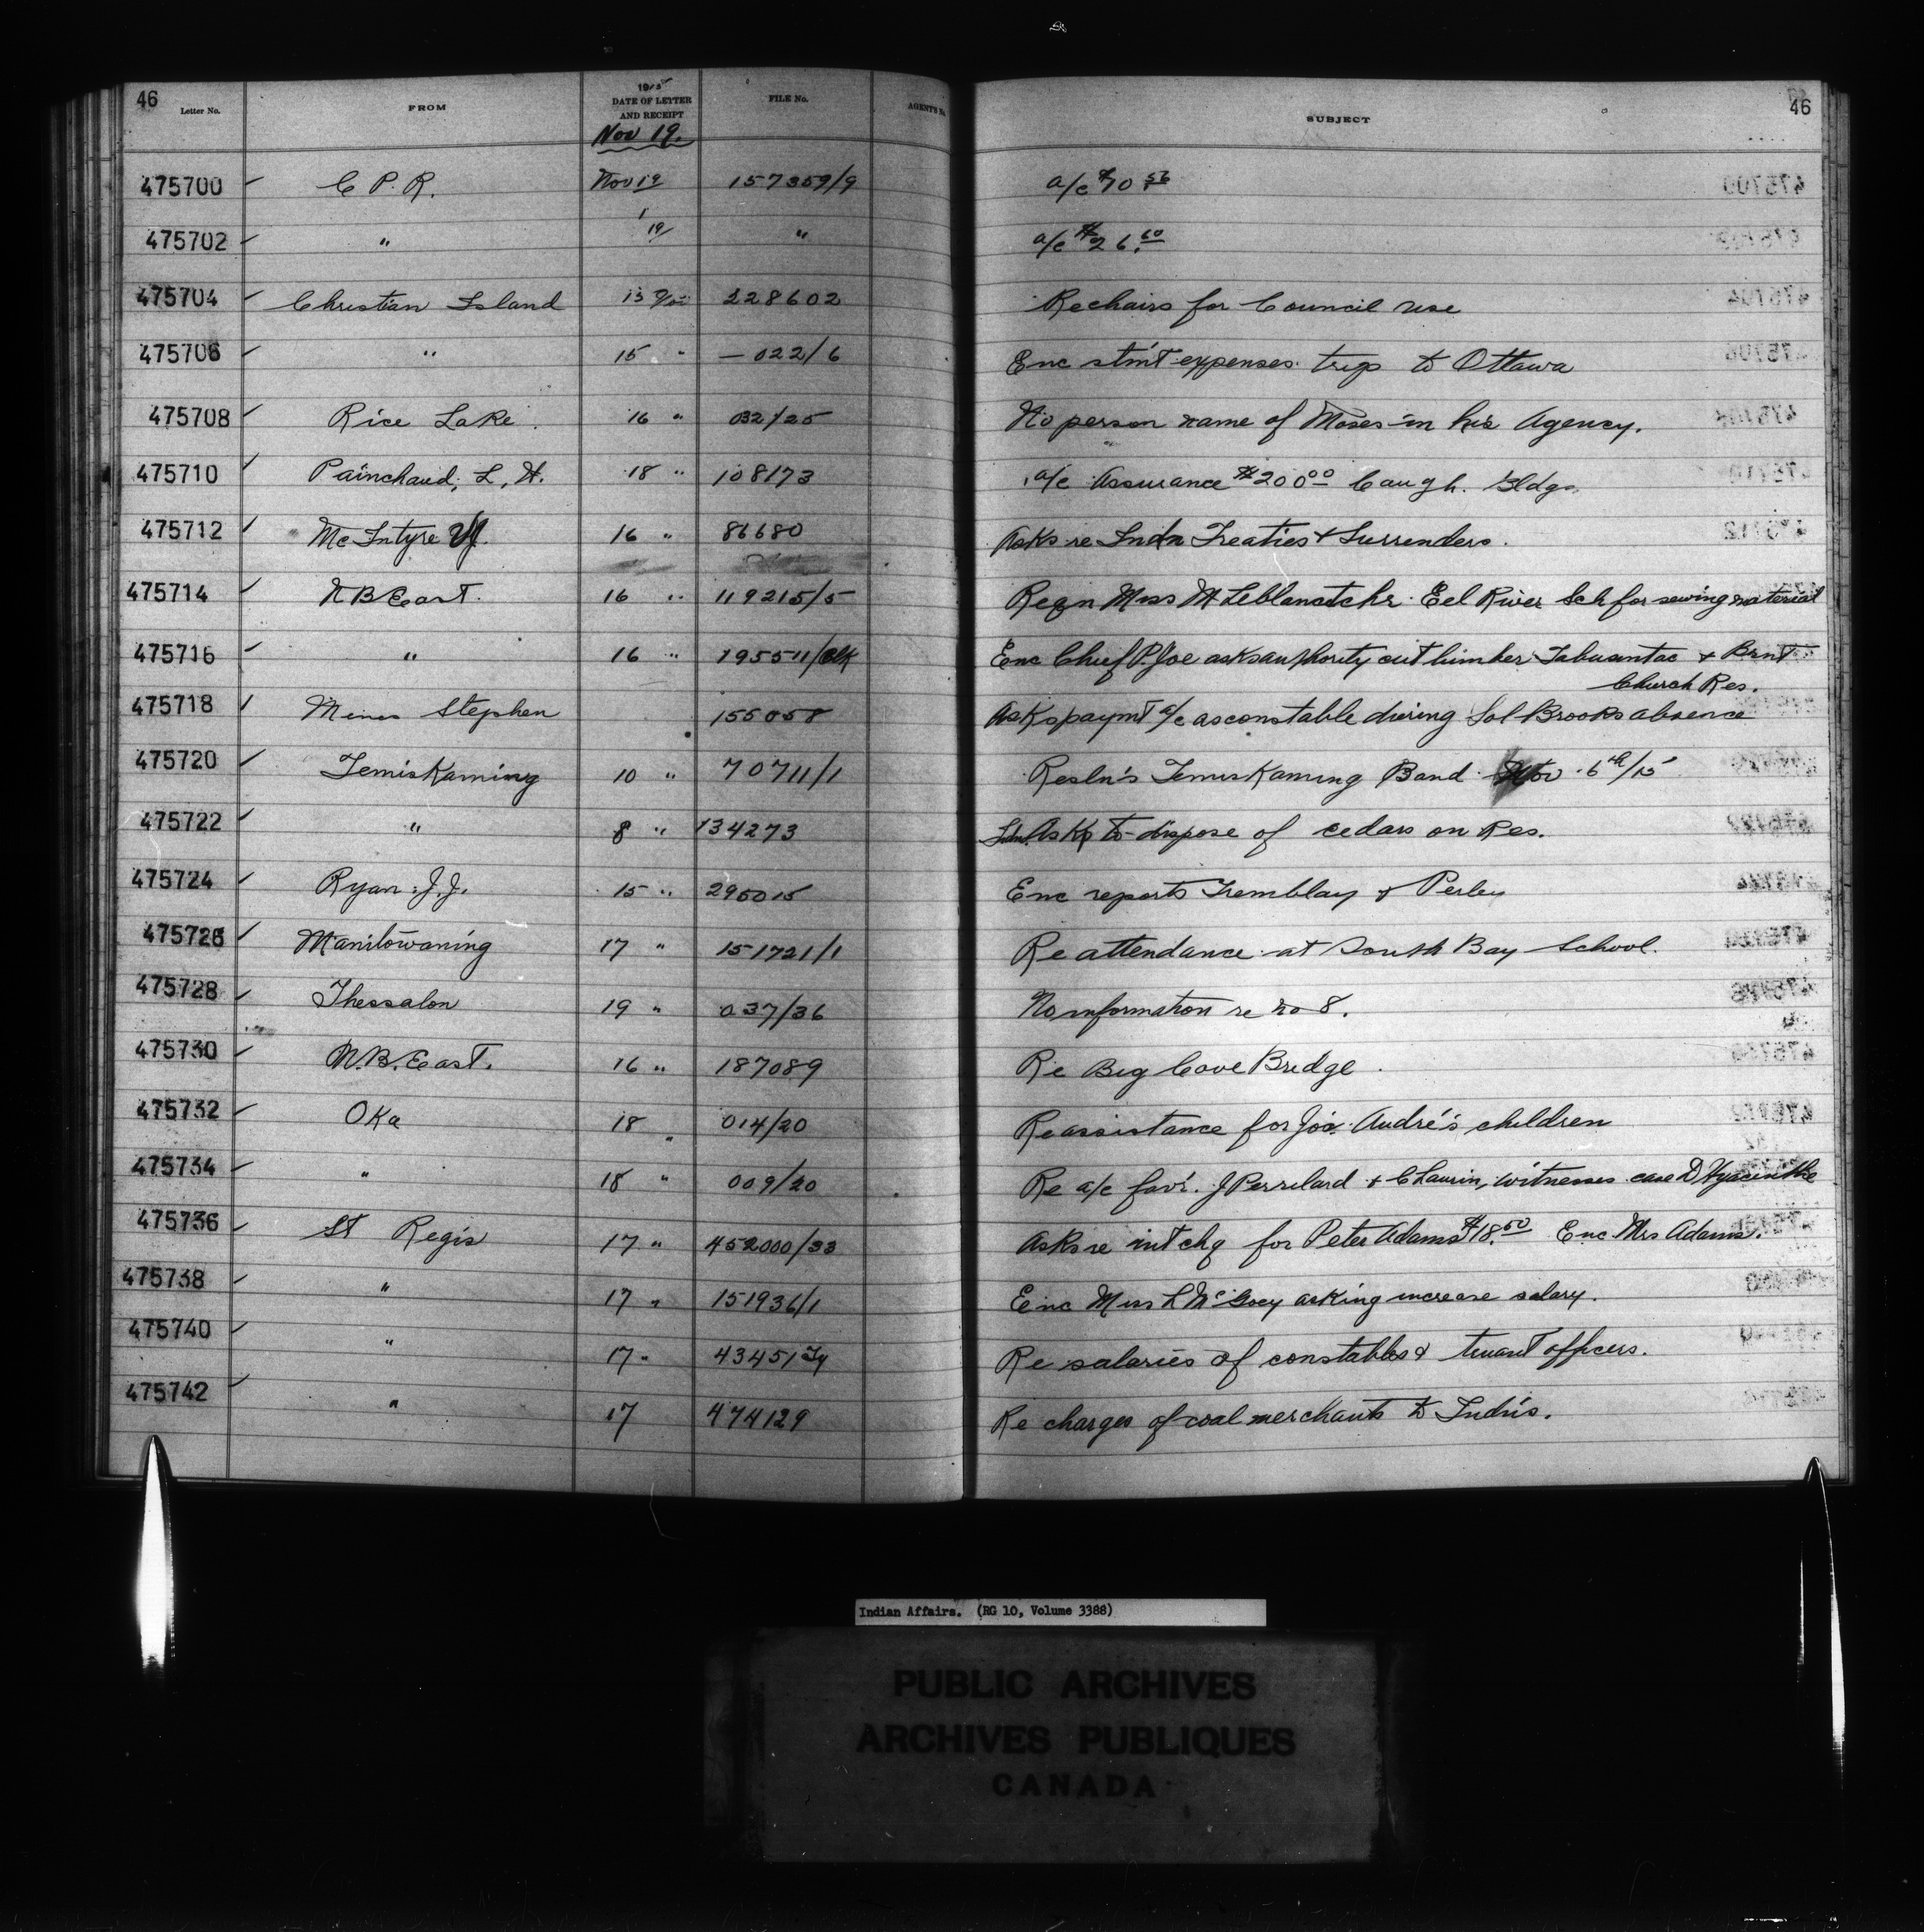 46 46
Letter No. FROM 1915 DATE OF LETTER AND RECEIPT FILE No. AGENTS No. SUBJECT
Nov 19.
475700 C P. R. Nov 19 157359/9 a/c $70 56
475702 " 19/ " a/c $26.60
475704 Christian Island 13 228602 Re chairs for Council use
475706 " 15 " —022/6 Enc stm't expenses trip to Ottawa
475708 Rice Lake. 16 " 032/25 No person name of Moses in his Agency.
475710 Painchaud, L. H. 18 " 108173 a/c Assurance $200 00 Caugh. Bldgs
475712 McIntyre 16 " 86680 Asks re Indn Treaties & Surrenders.
475714 N B East. 16 " 119215/5 Reqn Miss M Leblanc tchr Eel River Sch for sewing material
475716 " 16 " 195511/ Enc Chief P. Joe asks authority cut timber Tabusintac & Brnt
Church Res.
475718 Stephen 155058 Asks paymt a/c as constable during Sol Brooks absence
475720 Temiskaming 10 " 70711/1 Resln's Temiskaming Band Nov. 6th/15
475722 " 8 " 134273 Asks to dispose of cedars on Res.
475724 Ryan, J. J. 15 " 295015 Enc reports Tremblay & Perley
475726 Manitowaning 17 " 151721/1 Re attendance at South Bay School.
475728 Thessalon 19 " 037/36 No information re no 8.
475730 N. B. East. 16 " 187089 Re Big Cove Bridge.
475732 Oka 18 " 014/20 Re assistance for Jos. André's children
475734 " 18 " 009/20 Re a/c fav'r. J & C Laurin, witnesses case D Hyacinthe
475736 St Regis 17 " 452000/33 Asks re int chq for Peter Adams $18.50 Enc Mrs Adams.
475738 " 17 " 151936/1 Enc Miss L McGoey asking increase salary.
475740 " 17 " 43451 Re salaries of constables & truant officers.
475742 " 17 474129 Re charges of coal merchants to Indn's.
Indian Affairs. (RG 10, Volume 3388)
PUBLIC ARCHIVES
ARCHIVES PUBLIQUES
CANADA